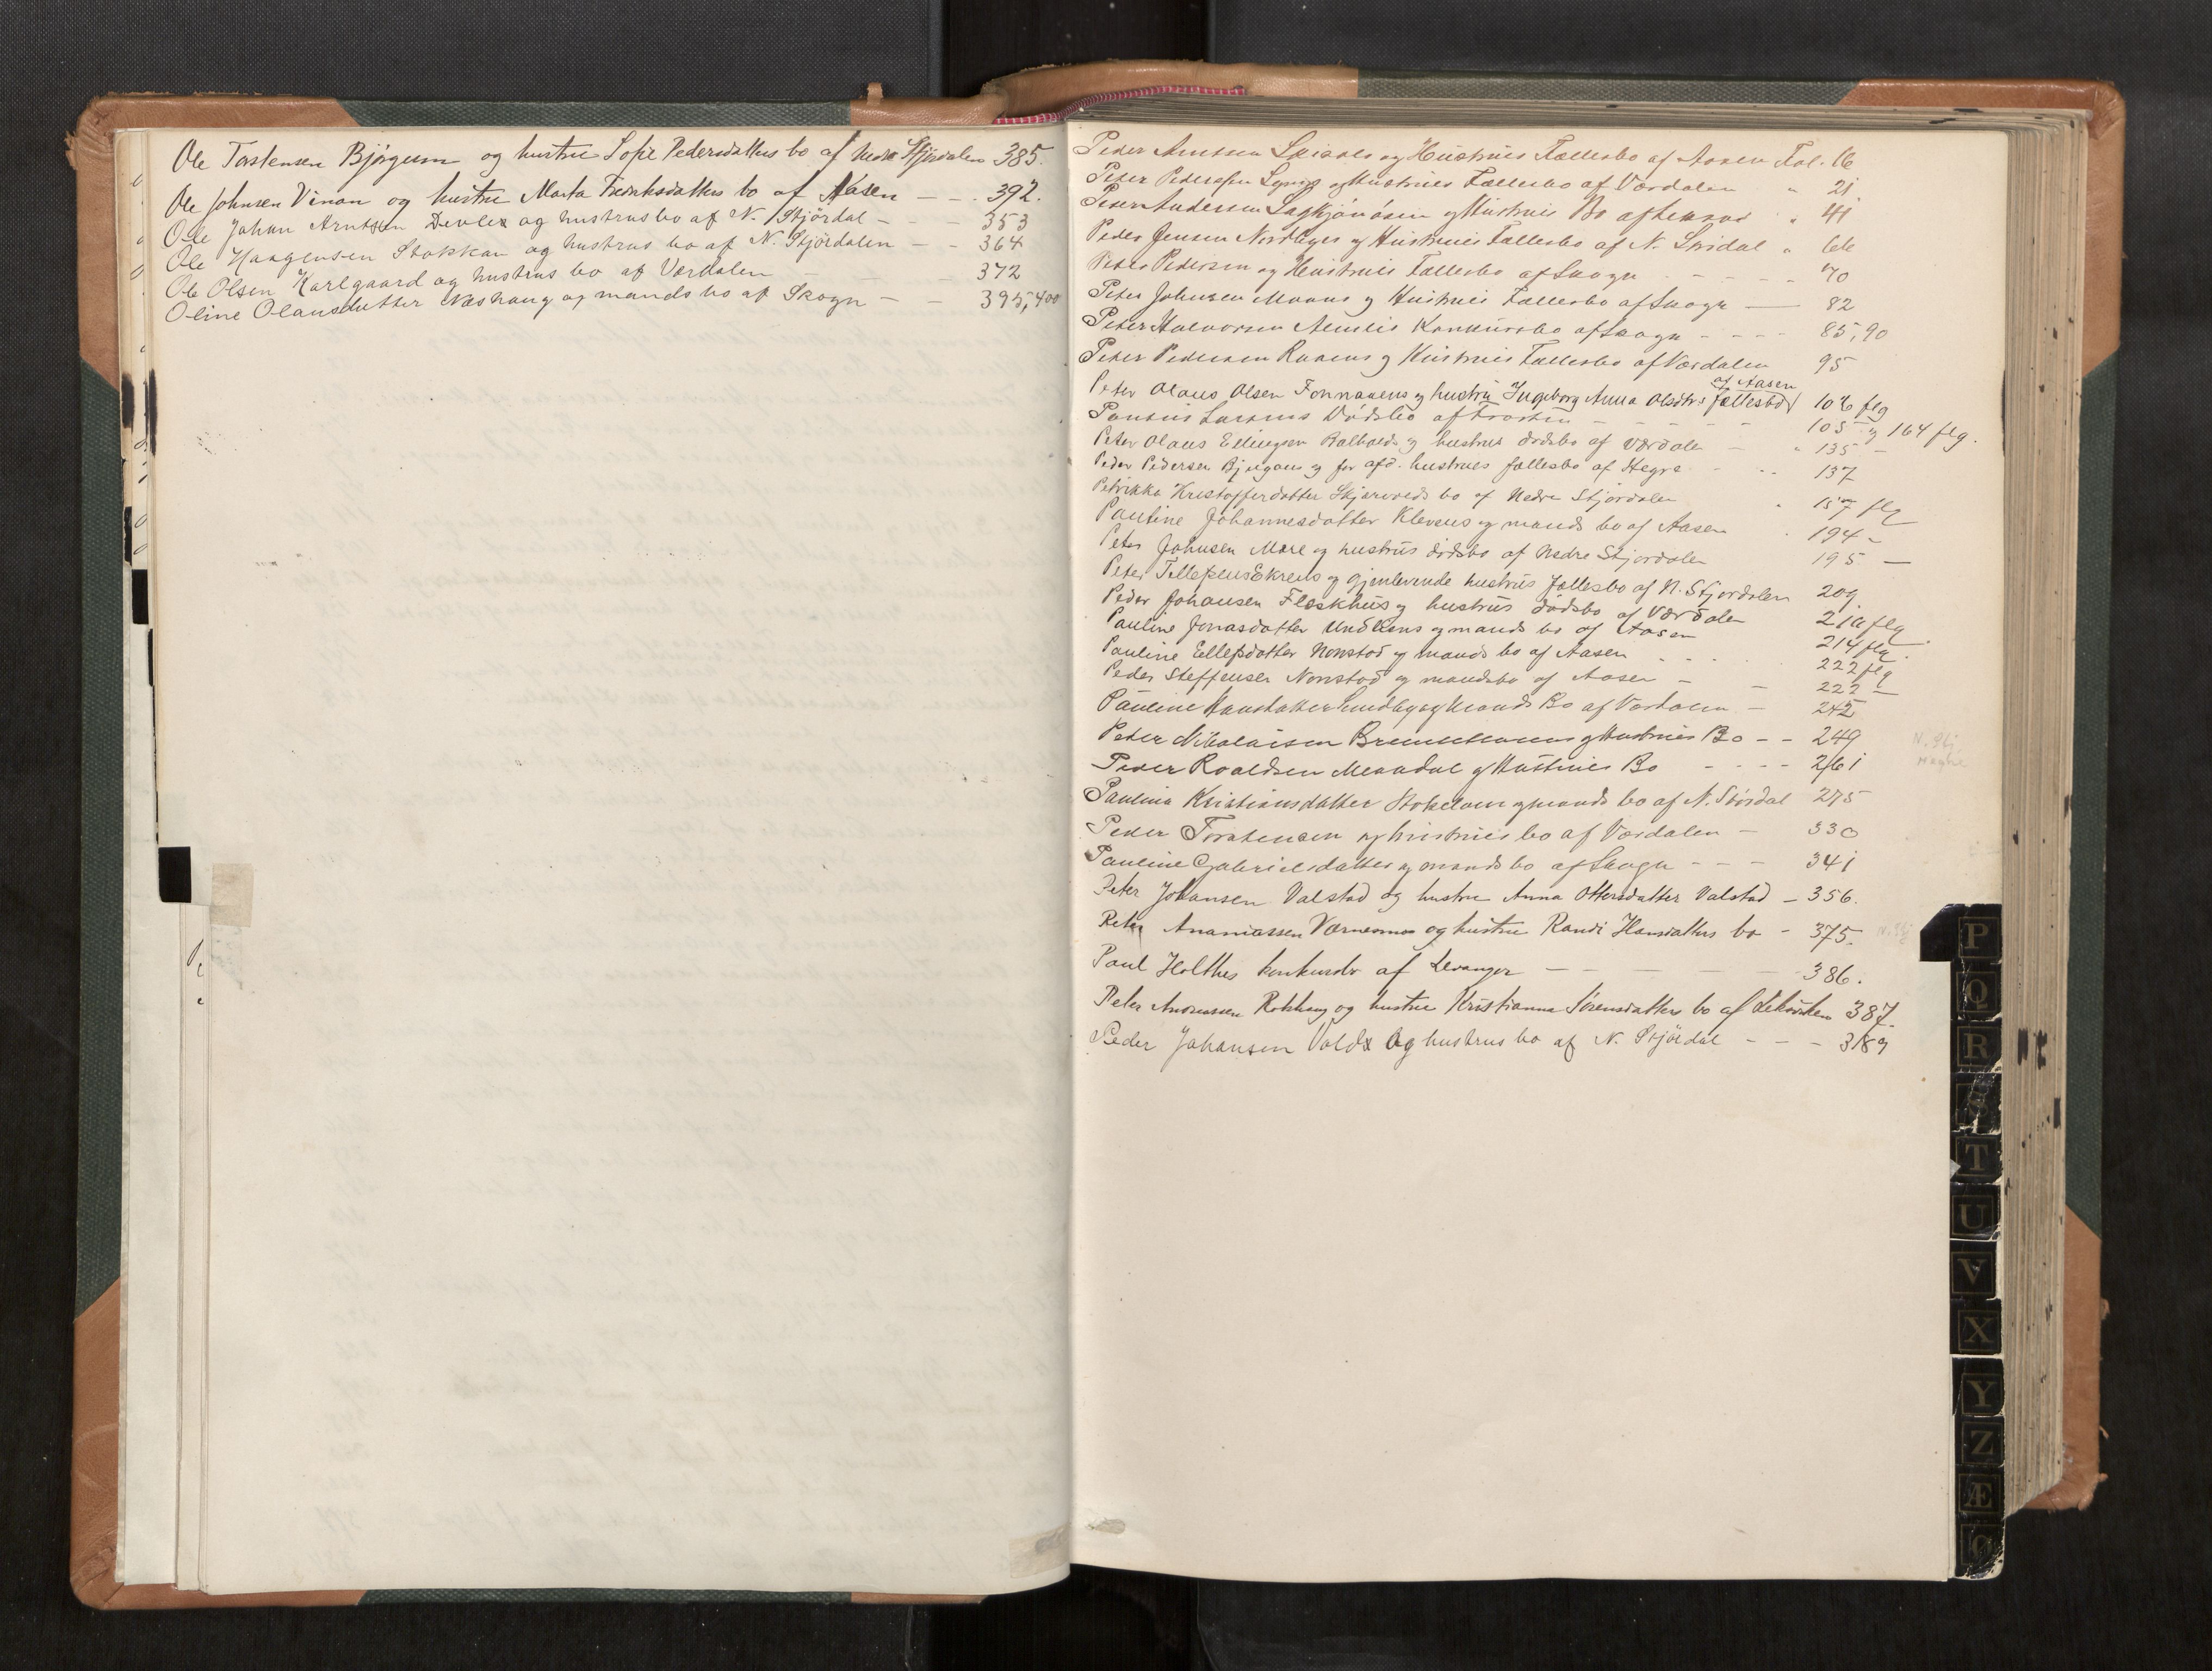 Ole Torstensen Bjørgum og hustru Sofie Pedersdatters bo af Nedre Stjørdalen 385.
Ole Johnsen Vinan og hustru Marta Fredriksdatters bo af Aasen - - 392.
Ole Johan Arntsen og hustrus bo af N. Stjördal - 353
Ole Haagensen Stokkan og hustrus bo af N. Stjördalen - - 364
Ole Olsen Karlgaard og hustrus bo af Værdalen 372
Oline Olausdutter Næshaug og mands bo af Skogn - - 395, 400
Peder Arntsen og Hustrues Fællesbo af Aasen Fol. 16
Peter Pedersen og Hustrues Fællesbo af Værdalen " 21
Peter Andersen og Hustrues Bo af " 41
Peder Jensen og Hustrues Fællesbo af N. " 66
Peter Pedersen og Hustrues Fællesbo af Skogn - - - 70
Peter Johnsen og Hustrues Fællesbo af Skogn - 82
Peter Halvorsen Konkursbo af Skogn - - - 85, 90
Peter Pedersen og Hustrues Fællesbo af Værdalen 95
af Aasen
Peter Olaus Olsen og hustru Ingeborg Anna Olsdtrs fællesbo 106 flg
Larsens Dødsbo af Frosten - - - - - 105 og 164 flg.
Peter Olaus Ellingsen og hustrus dødsbo af Værdalen - " 135 -
Peder Pedersen og før afd. hustrues fællesbo af Hegre - " 137
Petrikka Kristofferdatter bo af Nedre Stjørdalen " 157 flg
Pauline Johannesdatter og mands bo af Aasen . 194 -
Peter Johnsen Mære og hustrus dødsbo af Nedre Stjørdalen 195 -
Peter Ekrens og gjenlevende hustrus fællesbo af N. Stjørdalen 209
Peder Johansen Fleskhus og hustrus dødsbo af Værdalen 210 flg.
Pauline Jonasdatter og mands bo af Aasen 214 flg.
Pauline Ellefsdatter Nonstad og mands bo af Aasen - - - 222 flg
Peder Steffensen Nonstad og mandsbo af Aasen - - 222 -
Pauline og Mands Bo af Værdalen - 242
Peter Nikolaisen og Hustrues Bo - - 249 N. Stj
Peder Roaldsen og Hustrues Bo - - - - 261 Hegre
Paulina Kristiansdatter og mands bo af N. Stördal 275
Peder Torstensen og hustrues bo af Værdalen - 330
Pauline Gabrielsdatter og mands bo af Skogn - - - 341
Peter Johansen Valstad og hustru Anna Ottersdatter Valstad - 356.
Peter Ananiassen Værnesmo og hustru Randi Hansdatters bo - 375. N. Stj
Paul Holthes konkursbo af Levanger - - - - - 386.
Peter Andreassen og hustru Kristianna Sørensdatters bo af Leksviken 387.
Peder Johansen og hustrus bo af N. Stjördal - - - 389
P
Q
R
S
T
U
V
X
Y
Z
Æ
Ø